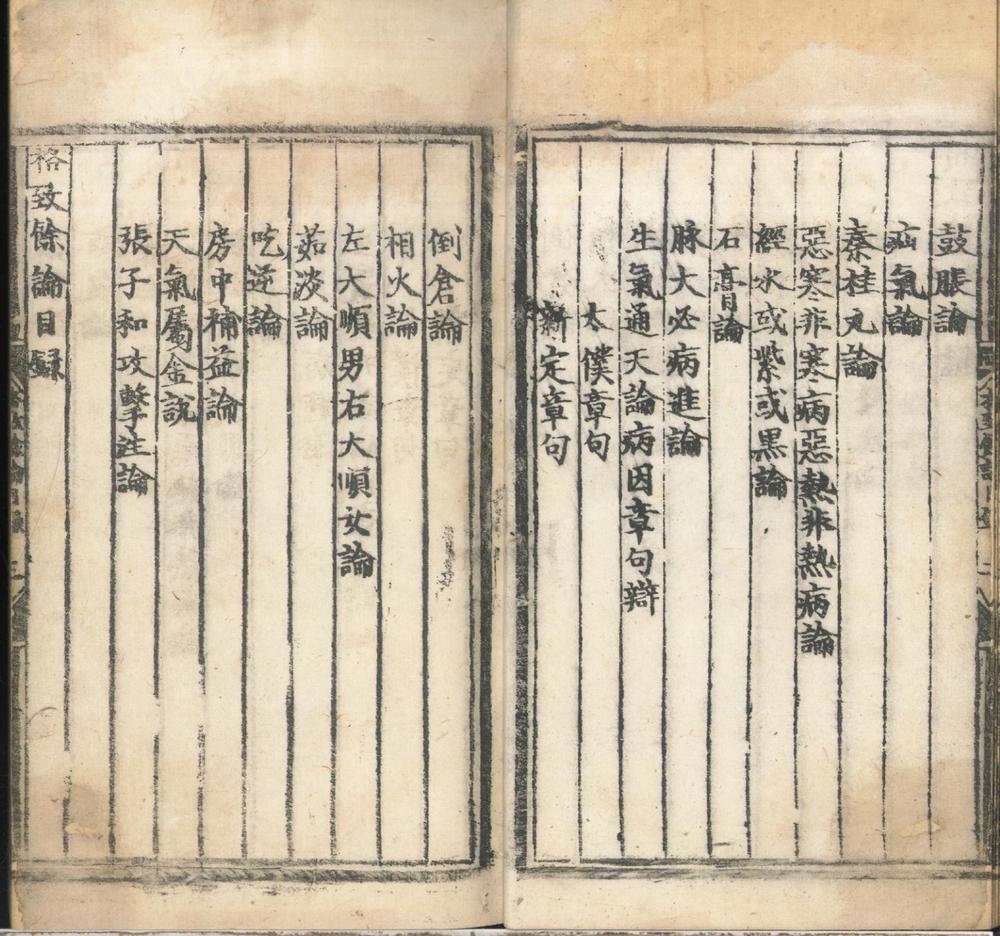 鼓脹論
疝氣論
秦桂丸論
惡寒非寒病惡熱非熱病論
經水或紫或黑論
石膏論
脉大必病進論
生氣通天論病因章句辯
太僕章句
新定章句
倒倉論
相火論
左大順男右大順女論
茹淡論
吃逆論
房中補益論
天氣屬金說
張子和攻擊注論
格致餘論目録